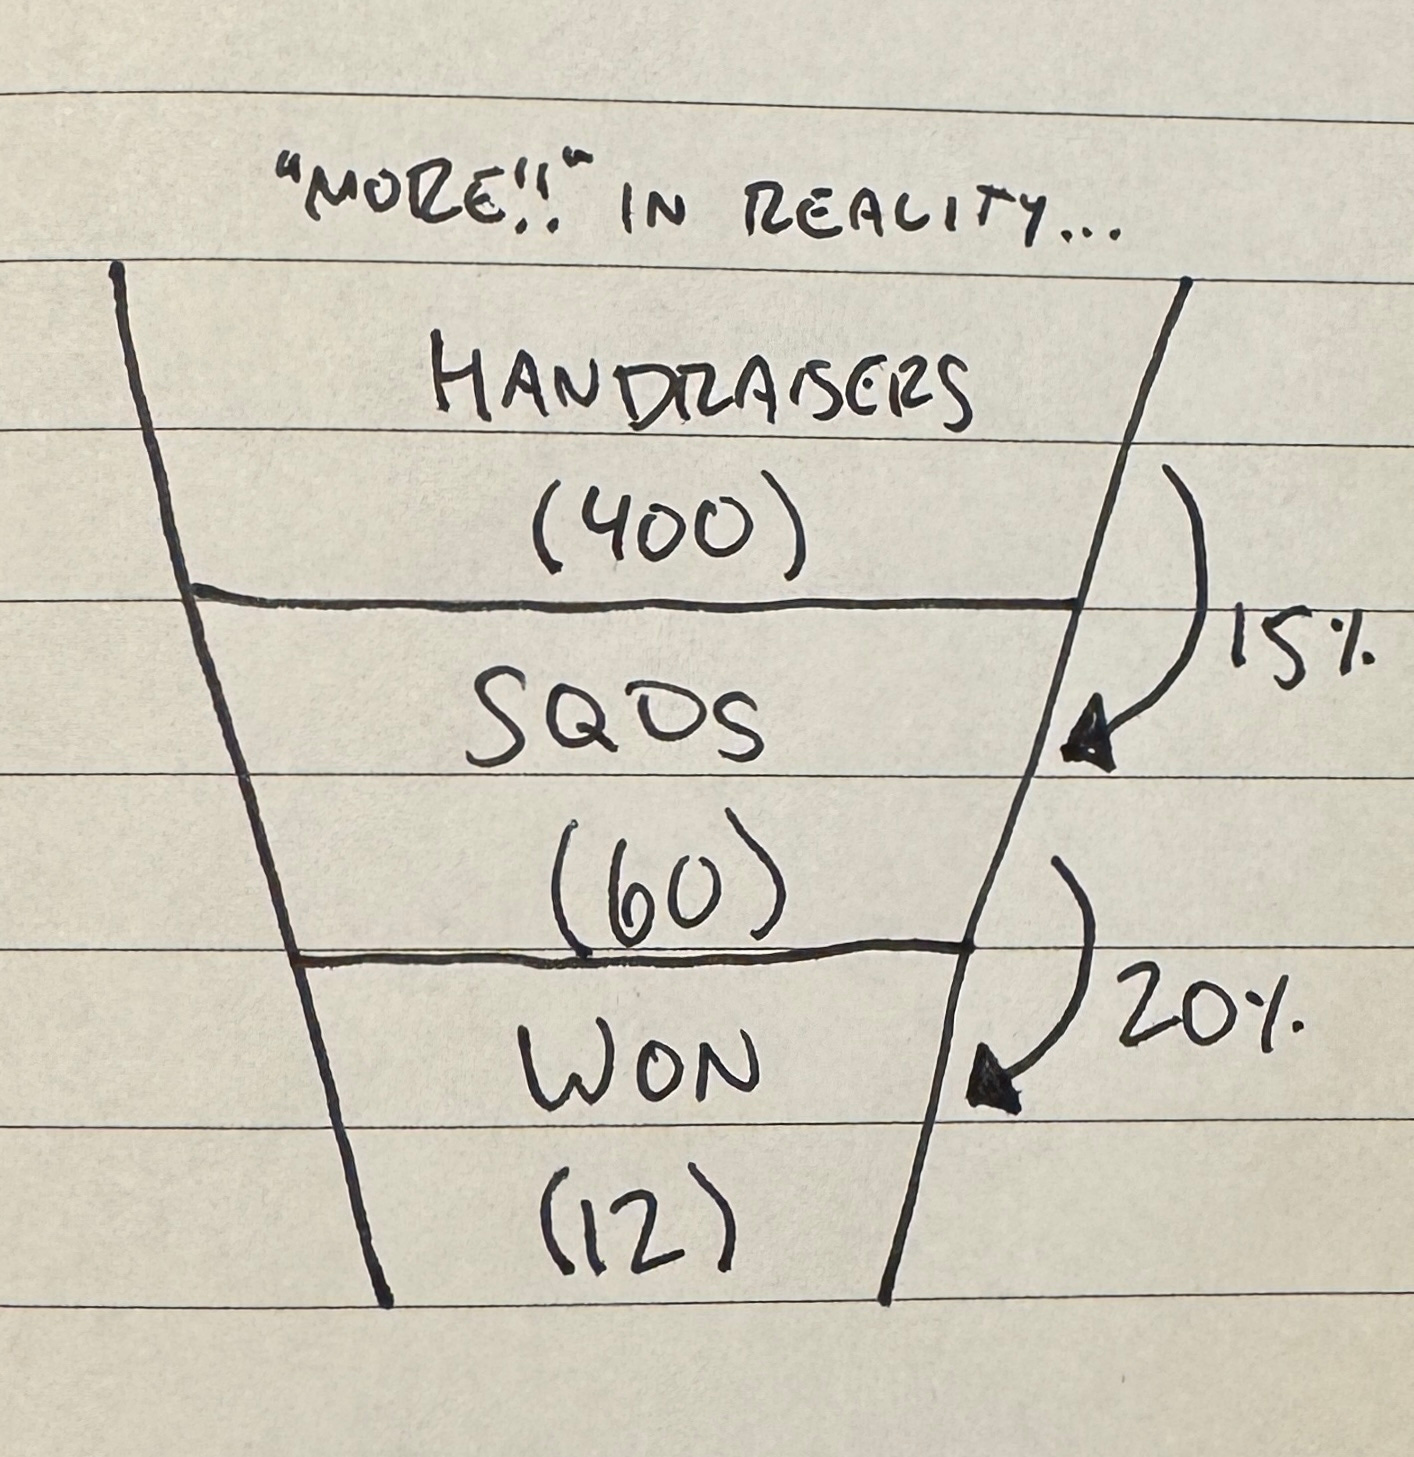 "MORE!!" IN REALITY...
HANDRAISERS
(400)
15%
SQOS
(60)
20%
WON
(12)